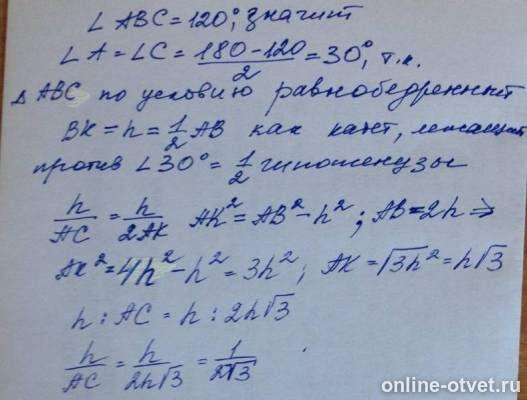 ∠ ABC = 120°, значит
∠ A = ∠C = (180-120)/2 = 30°, т.к.
Δ ABC по условию равнобедренный
BK = h = 1/2 AB как катет, лежащий
против ∠30° = 1/2 гипотенузы
h/AC = h/2AK AK² = AB² - h² ; AB = 2h ⇒
AK² = 4h² - h² = 3h² ; AK = √3h² = h√3
h : AC = h : 2h√3
h/AC = h/2h√3 = 1/2√3
online-otvet.ru